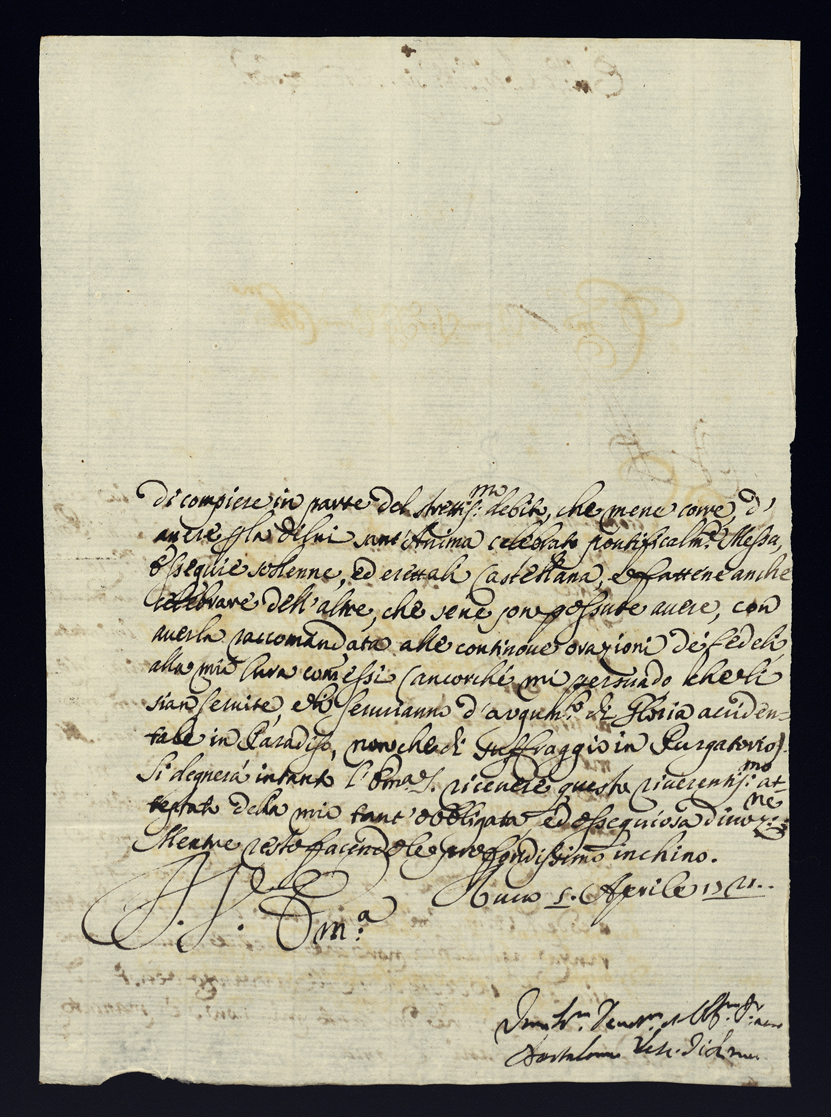 di compiere in parte del strettis:mo debito, che mene corre, d'
avere p la di lui sant'Anima celebrato pontificalm.te Messa,
Essequie solenne, ed erettali Castellana, e fattene anche
celebrare dell'altre, che sene son possute avere, con
averla raccomandata alle continove orazioni de' fedeli,
alla mia Cura com̃essi (ancorché mi persuado che li
sian servite, e li serviranno d'augum.to di Gloria acciden=
tale in Paradiso, non che di suffraggio in Purgatorio).
Si degnerá intanto l'Em̃a V. ricevere questo riverentis:mo at=
testato della mia tant'obbligata, ed essequiosa divoz:ne
Mentre resto facendole profondissimo inchino.
Aprile
V. Em.a